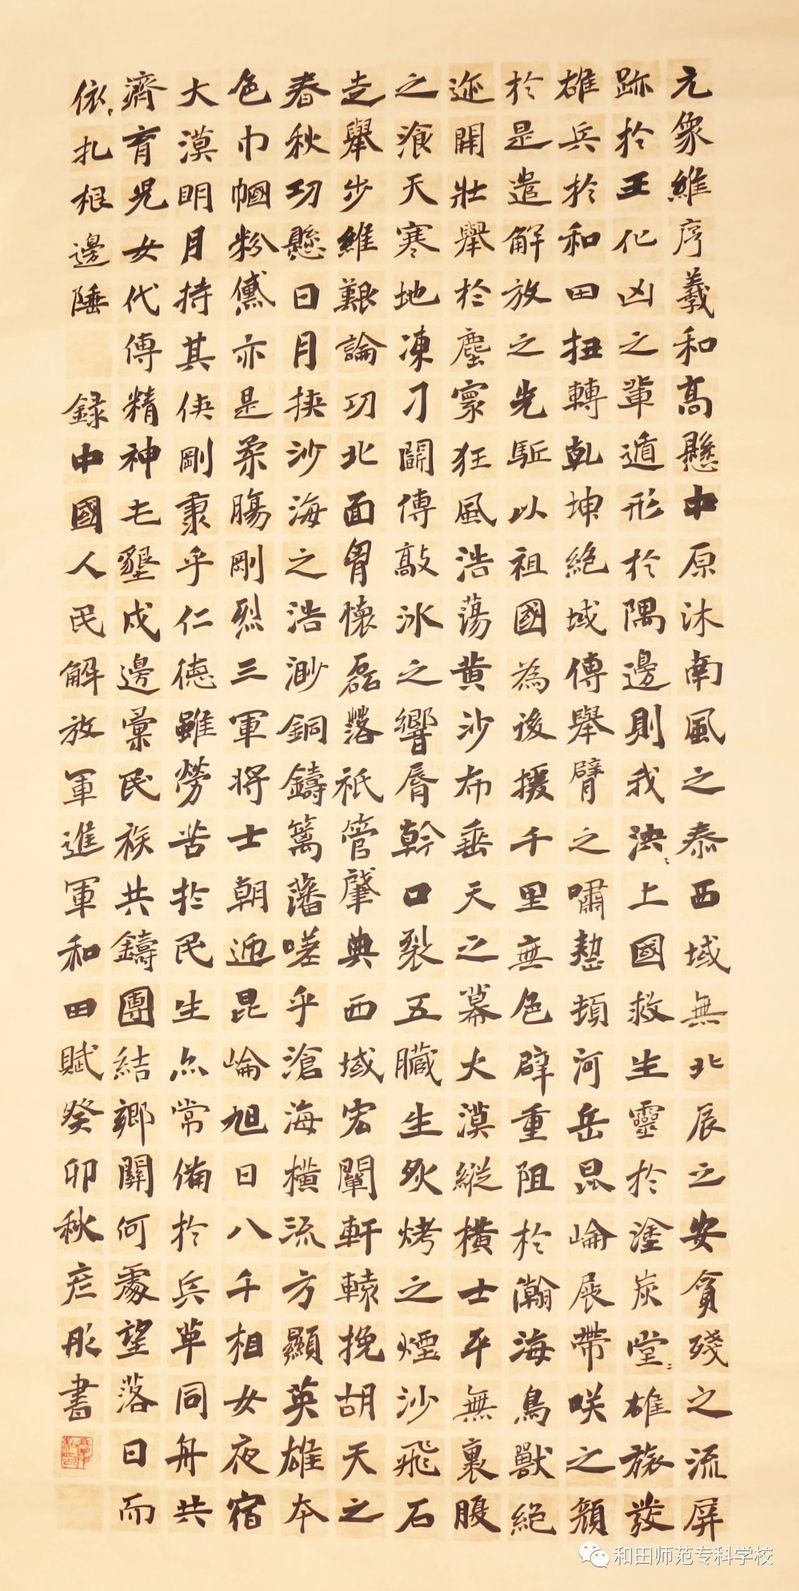 元象維序羲和高懸中原沐南風之泰西域無北辰之安貪殘之流屏
跡於王化凶之輩遁形於隅邊則我泱泱上國救生靈於塗炭堂堂雄旅發
雄兵於和田扭轉乾坤絕域傳舉臂之嘯整頓河岳昆崙展帶咲之顏
於是遣解放之先駈以祖國為後援千里無色辟重阻於瀚海鳥獸絕
迹開壯舉於塵寰狂風浩蕩黄沙布垂天之幕大漠縱横士卒無裹腹
之飡天寒地凍刁鬭傳敲冰之響唇幹口裂五臟生炙烤之煙沙飛石
走舉步維艱論功北面胷懷磊落祇管肇典西域宏闡軒轅挽胡天之
春秋功懸日月挾沙海之浩渺銅鑄篱藩嗟乎滄海横流方顯英雄本
色巾幗粉黛亦是柔腸剛烈三軍将士朝迎昆崙旭日八千湘女夜宿
大漠明月持其俠剛秉乎仁德雖勞苦於民生尒常備於兵革同舟共
濟育児女代傳精神屯墾戍邊彙民族共鑄團結鄉關何處望落日而
依依扎根邊陲 錄中國人民解放軍進軍和田賦癸卯秋彥彤書
和田师范专科学校